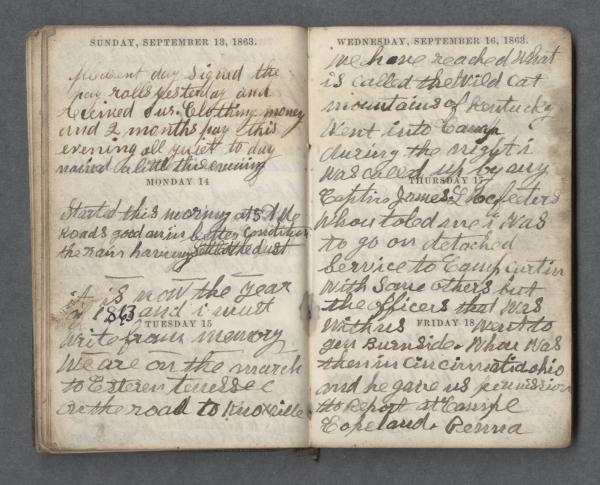 SUNDAY, SEPTEMBER 13, 1863.
pleasent day signed the
pay rolls yesterday and
received our Clothing money
and 2 months pay this
evening all quiet to day
rained a little this evening
MONDAY 14
Started this morning at 5 A Me
Roads good an in better condition
the rain having settled the dust
it is now the year
1863 and i must
TUESDAY 15
write from memory
We are on the march
to Esteren tenessee
on the road to Knoxville
WEDNESDAY, SEPTEMBER 16, 1863.
we have reached What
is called the Wild Cat
mountains of Kentucky
Went into Camp
during the night i
was called up by my
THURSDAY 17
Captin James L
Whou toled me i Was
to go on detached
Service to Camp Curtin
With Some others but
the officers that Was
With us Went to
FRIDAY 18
gen Burnside. Whou Was
then in Cincinnati ohio
and he gave us permission
to Report at Campe
Copeland. Penna